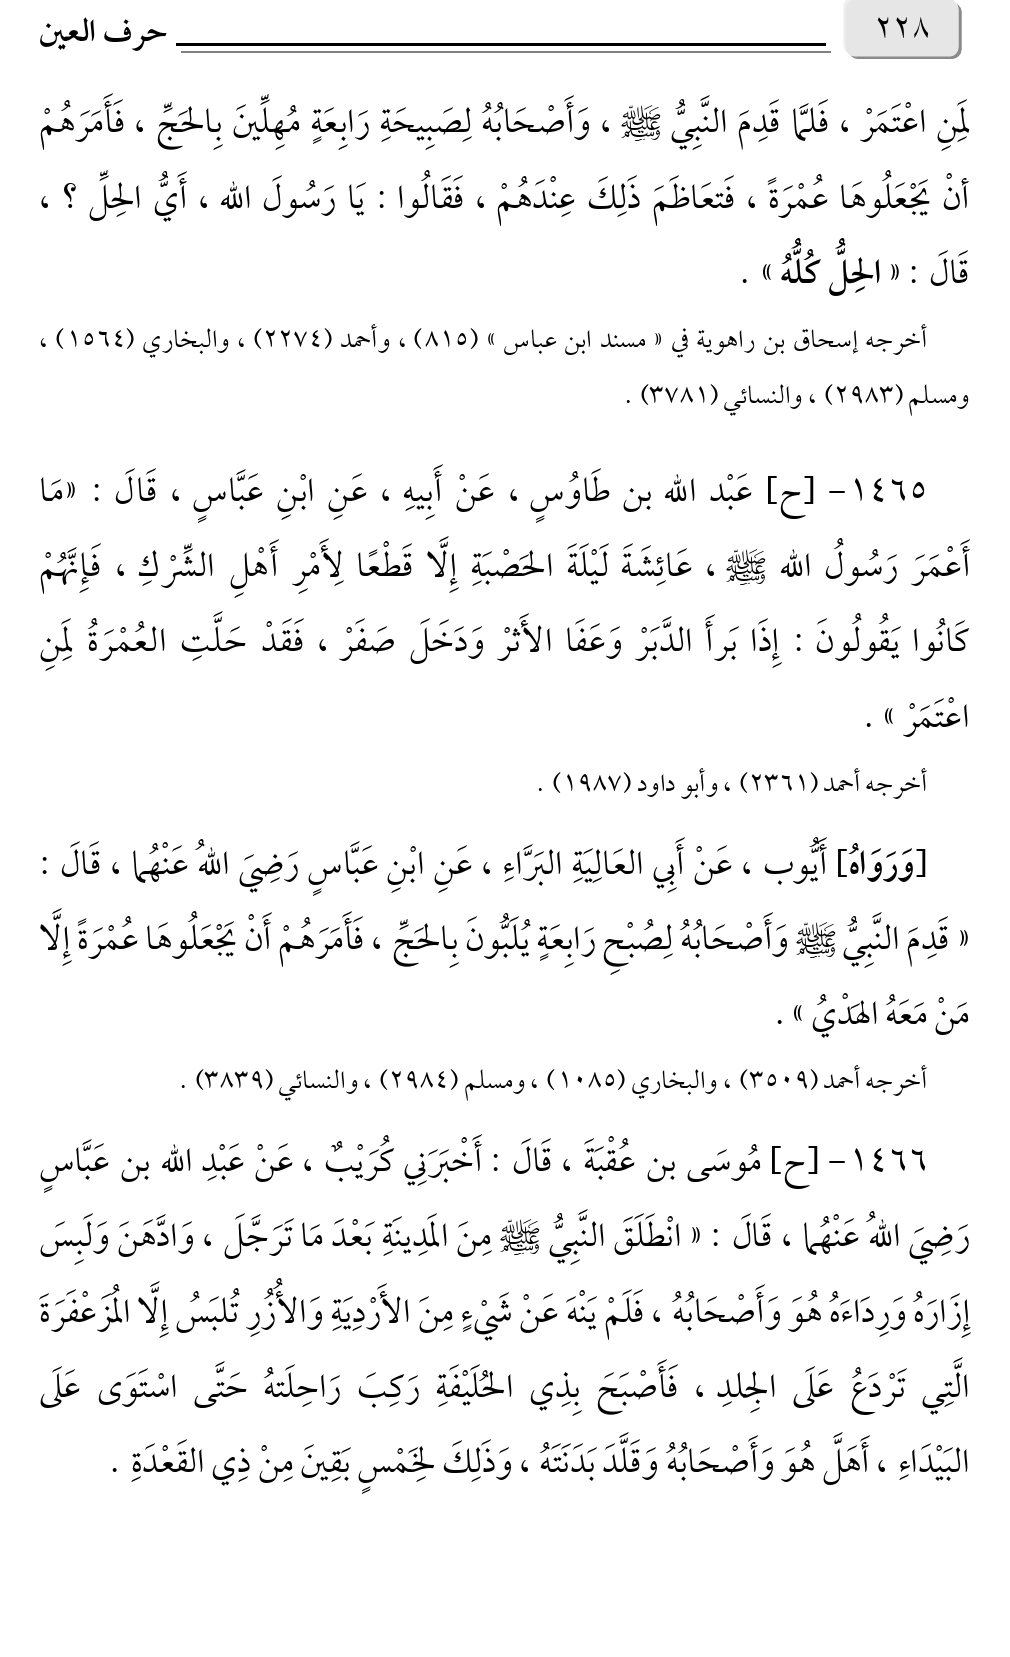 ٢٢٨
حرف العين
لِمَنِ اعْتَمَرْ ، فَلمَّا قَدِمَ النَّبِيُّ ﷺ ، وَأَصْحَابُهُ لِصَبِيحَةِ رَابِعَةٍ مُهِلِّينَ بِالحَجِّ ، فَأَمَرَهُمْ
أنْ يَجْعَلُوهَا عُمْرَةً ، فَتعَاظَمَ ذَلِكَ عِنْدَهُمْ ، فَقَالُوا : يَا رَسُولَ الله ، أَيُّ الحِلِّ ؟ ،
قَالَ : « الحِلُّ كُلُّهُ » .
أخرجه إسحاق بن راهوية في « مسند ابن عباس » (٨١٥) ، وأحمد (٢٢٧٤) ، والبخاري (١٥٦٤) ،
ومسلم (٢٩٨٣) ، والنسائي (٣٧٨١) .
١٤٦٥- [ح] عَبْد الله بن طَاوُسٍ ، عَنْ أَبِيهِ ، عَنِ ابْنِ عَبَّاسٍ ، قَالَ : «مَا
أَعْمَرَ رَسُولُ الله ﷺ ، عَائِشَةَ لَيْلَةَ الحَصْبَةِ إِلَّا قَطْعًا لِأَمْرِ أَهْلِ الشِّرْكِ ، فَإِنَّهُمْ
كَانُوا يَقُولُونَ : إِذَا بَرأَ الدَّبَرْ وَعَفَا الأَثرْ وَدَخَلَ صَفَرْ ، فَقَدْ حَلَّتِ العُمْرَةُ لِمَنِ
اعْتَمَرْ » .
أخرجه أحمد (٢٣٦١) ، وأبو داود (١٩٨٧) .
[وَرَوَاهُ] أَيُّوب ، عَنْ أَبِي العَالِيَةِ البَرَّاءِ ، عَنِ ابْنِ عَبَّاسٍ رَضِيَ اللهُ عَنْهُما ، قَالَ :
« قَدِمَ النَّبِيُّ ﷺ وَأَصْحَابُهُ لِصُبْحِ رَابِعَةٍ يُلَبُّونَ بِالحَجِّ ، فَأَمَرَهُمْ أَنْ يَجْعَلُوهَا عُمْرَةً إِلَّا
مَنْ مَعَهُ الهَدْيُ » .
أخرجه أحمد (٣٥٠٩) ، والبخاري (١٠٨٥) ، ومسلم (٢٩٨٤) ، والنسائي (٣٨٣٩) .
١٤٦٦- [ح] مُوسَى بن عُقْبَةَ ، قَالَ : أَخْبَرَنِي كُرَيْبٌ ، عَنْ عَبْدِ الله بن عَبَّاسٍ
رَضِيَ اللهُ عَنْهُما ، قَالَ : « انْطَلَقَ النَّبِيُّ ﷺ مِنَ المَدِينَةِ بَعْدَ مَا تَرَجَّلَ ، وَادَّهَنَ وَلَبِسَ
إِزَارَهُ وَرِدَاءَهُ هُوَ وَأَصْحَابُهُ ، فَلَمْ يَنْهَ عَنْ شَيْءٍ مِنَ الأَرْدِيَةِ وَالأُزُرِ تُلبَسُ إِلَّا المُزَعْفَرَةَ
الَّتِي تَرْدَعُ عَلَى الجِلدِ ، فَأَصْبَحَ بِذِي الحُلَيْفَةِ رَكِبَ رَاحِلَتهُ حَتَّى اسْتَوَى عَلَى
البَيْدَاءِ ، أَهَلَّ هُوَ وَأَصْحَابُهُ وَقَلَّدَ بَدَنَتَهُ ، وَذَلِكَ لِخَمْسٍ بَقِينَ مِنْ ذِي القَعْدَةِ .